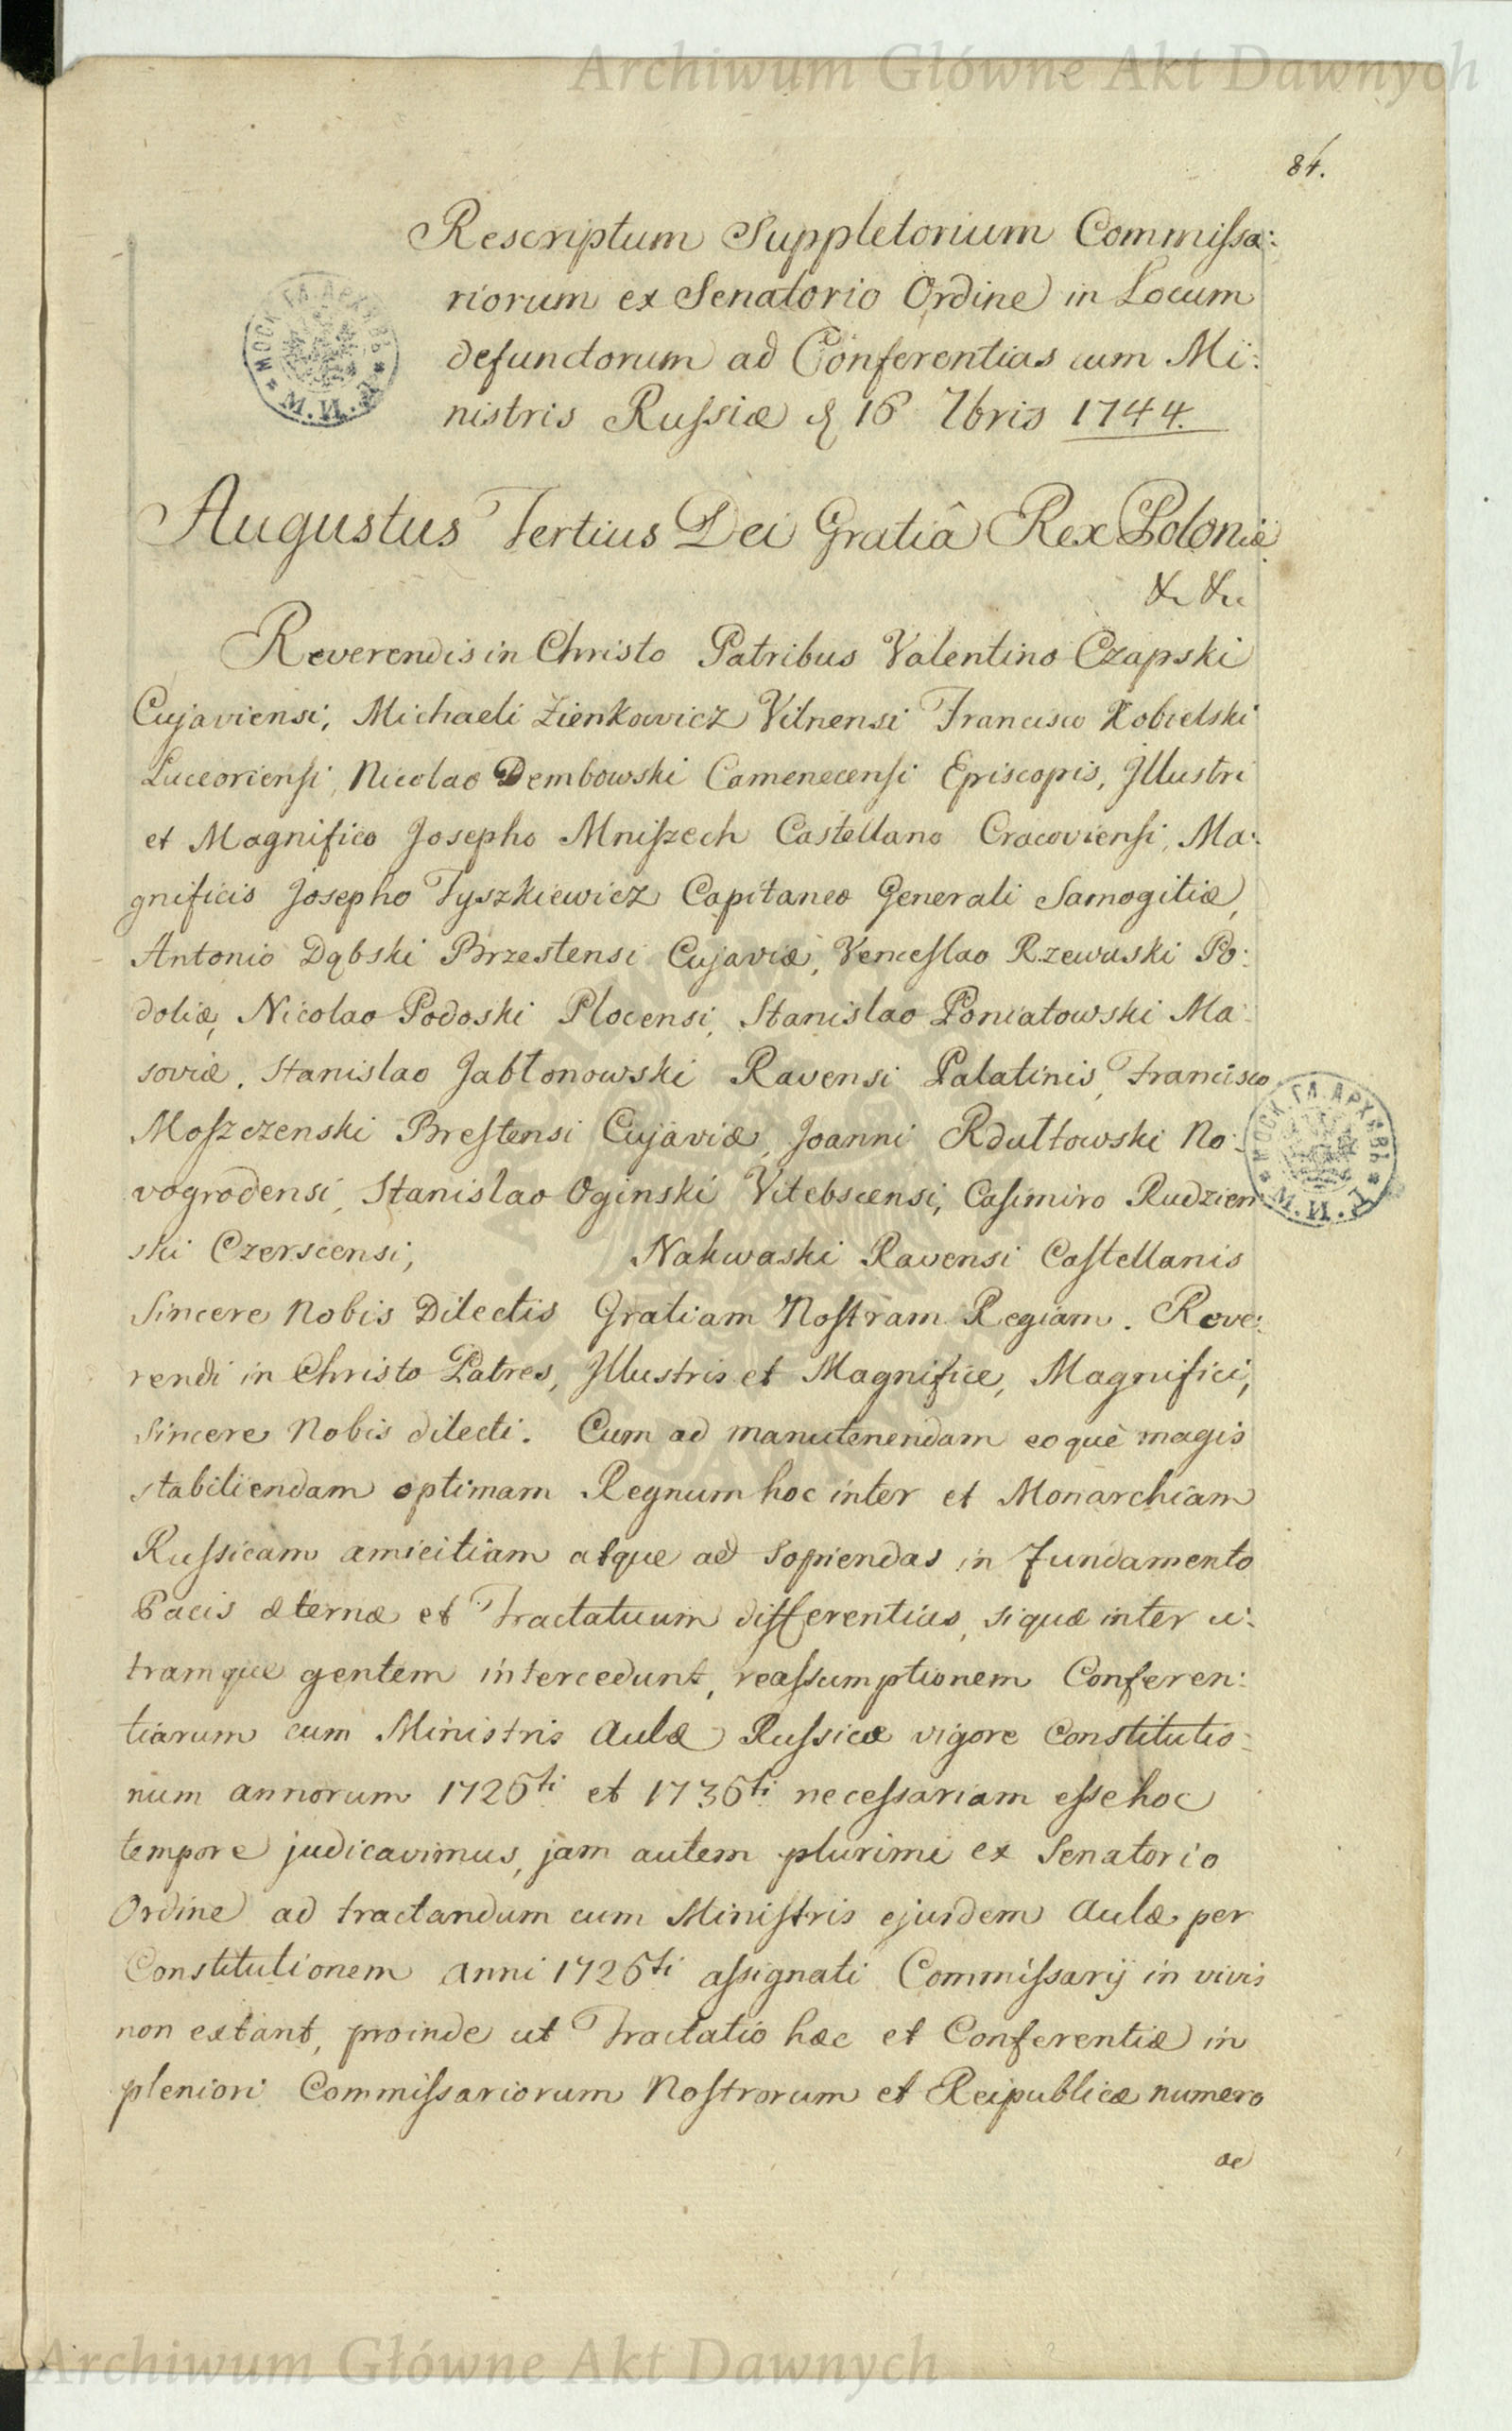 Archiwum Główne Akt Dawnych
84.
Rescriptum Suppletorium Commiſsa:
riorum ex Senatorio Ordine in Locum
defunctorum ad Conferentias cum Mi:
nistris Ruſsiæ 16 7bris 1744.
Augustus Tertius Dei Gratiâ Rex Poloniæ
&c &c
Reverendis in Christo Patribus Valentino Czapski
Cujaviensi, Michaeli Zienkowicz Vilnensi Francisco Kobielski
Luceorienſi, Nicolao Dembowski Camenecenſi Episcopis, Illustri
et Magnifico Josepho Mniſzech Castellano Cracovienſi, Ma:
gnificis Josepho Tyszkiewicz Capitaneo Generali Samogitiæ,
Antonio Dąbski Brzestensi Cujaviæ, Venceſlao Rzewuski Po:
doliæ, Nicolao Podoski Plocensi, Stanislao Poniatowski Ma:
soviæ, Stanislao Jabłonowski Ravensi Palatinis, Francisco
Moſzczenski Breſtensi Cujaviæ, Joanni Rdułtowski No:
vogrodensi, Stanislao Oginski Vitebscensi, Caſimiro Rudzien
ski Czerscensi, Nakwaski Ravensi Caſtellanis
Sincere Nobis Dilectis Gratiam Noſtram Regiam. Reve:
rendi in Christo Patres, Illustris et Magnifice, Magnifici,
Sincere Nobis dilecti. Cum ad manutenendam eoquè magis
stabiliendam optimam Regnum hoc inter et Monarchiam
Ruſsicam amicitiam atque ad sopiendas in Fundamento
Pacis æternæ et Tractatuum differentias, siquæ inter u:
tramque gentem intercedunt, reaſsumptionem Conferen:
tiarum cum Ministris Aulæ Ruſsicæ vigore Constitutio:
num annorum 1726ti et 1736ti neceſsariam eſse hoc
tempore judicavimus, jam autem plurimi ex Senatorio
Ordine ad tractandum cum Miniſtris ejusdem Aulæ per
Constitutionem Anni 1726ti aſsignati Commiſsarij in vivis
non extant, proinde ut Tractatio hæc et Conferentiæ in
pleniori Commiſsariorum Noſtrorum et Reipublicæ numero
ac
Archiwum Główne Akt Dawnych